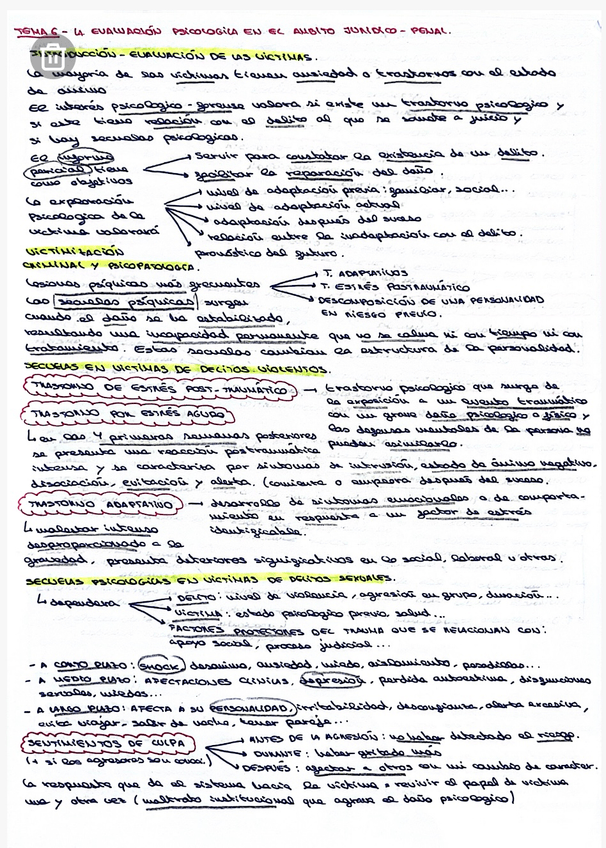 TEMA 6 - LA EVALUACIÓN PSICOLOGICA EN EL AMBITO JURIDICO - PENAL.
INTRODUCCIÓN - EVALUACIÓN DE LAS VÍCTIMAS.
La mayoria de las victimas tienen ansiedad o trastornos con el estado
de animo
El interés psicologico - forense valora si existe un trastorno psicologico y
si este tiene relación con el delito al que se somete a juicio y
si hay secuelas psicologicas.
El informe pericial tiene como objetivos
→ servir para constatar la existencia de un delito.
→ facilitar la reparación del daño.
La exploración psicologica de la victima valorará
→ nivel de adaptación previa: familiar, social...
→ nivel de adaptación actual
→ adaptación después del suceso
→ relación entre la inadaptación con el delito.
→ pronóstico del futuro.
VICTIMIZACIÓN
CRIMINAL Y PSICOPATOLOGIA.
Lesiones psíquicas más frecuentes
→ T. ADAPTATIVOS
→ T. ESTRÉS POSTRAUMÁTICO
→ DESCOMPOSICIÓN DE UNA PERSONALIDAD
EN RIESGO PREVIO.
Las secuelas psíquicas surgen
cuando el daño se ha estabilizado,
resultando una incapacidad permanente que no se calma ni con tiempo ni con
tratamiento. Estas secuelas cambian la estructura de la personalidad.
SECUELAS EN VICTIMAS DE DELITOS VIOLENTOS.
TRASTORNO DE ESTRÉS POST-TRAUMÁTICO → trastorno psicologico que surge de
la exposición a un evento traumático
con un grave daño psicologico o físico y
las defensas mentales de la persona no
pueden asimilarlo.
TRASTORNO POR ESTRÉS AGUDO
↳ en las 4 primeras semanas posteriores
se presenta una reacción postraumática
intensa y se caracteriza por sintomas de intrusión, estado de ánimo negativo,
disociación, evitación y alerta. (comienza o empeora después del suceso.
TRASTORNO ADAPTATIVO → desarrollo de sintomas emocionales o de comporta-
miento en respuesta a un factor de estrés
identificable.
↳ malestar intenso
desproporcionado a la
gravedad, presenta deterioros significativos en lo social, laboral u otras.
SECUELAS PSICOLOGICAS EN VICTIMAS DE DELITOS SEXUALES.
↳ dependera
→ DELITO: nivel de violencia, agresión en grupo, duración...
→ VICTIMA: estado psicologico previo, salud...
→ FACTORES PROTECTORES DEL TRAUMA QUE SE RELACIONAN CON:
apoyo social, proceso judicial...
- A CORTO PLAZO: SHOCK, desanimo, ansiedad, miedo, aislamiento, pesadillas...
- A MEDIO PLAZO: AFECTACIONES CLINICAS, depresión, perdida autoestima, disfunciones
sexuales, miedos...
- A LARGO PLAZO: AFECTA A SU PERSONALIDAD, irritabilidad, desconfianza, alerta excesiva,
evita viajar - salir de noche, tener pareja...
SENTIMIENTOS DE CULPA
→ ANTES DE LA AGRESIÓN: no haber detectado el riesgo.
→ DURANTE: haber gritado más
→ DESPUÉS: afectar a otros con mi cambio de caracter.
La respuesta que da el sistema hacia la victima = revivir el papel de victima
una y otra vez (maltrato institucional que agrava el daño psicologico)